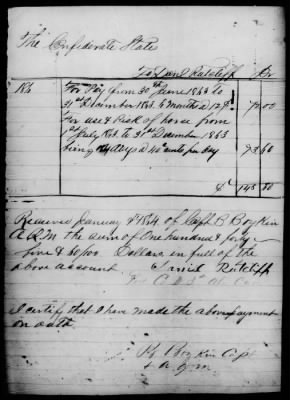 The Confederate State
To Danl Ratcliff Dr
186
For Pay from 30th June 1863 to
31st December 1863 6 months @ 12 $ 72.00
For use & Risk of horse from
1st July 1863 to 31st December 1863
being 184 days @ 40 cents per day 73.60
$ 145.60
Received January 1864 of Capt B Boykin
A.Q.M. the sum of One hundred & forty
five & 60/100 Dollars in full of the
above account Daniel Ratcliff
I certify that I have made the above payment
on oath
Boykin Capt
& A Q M